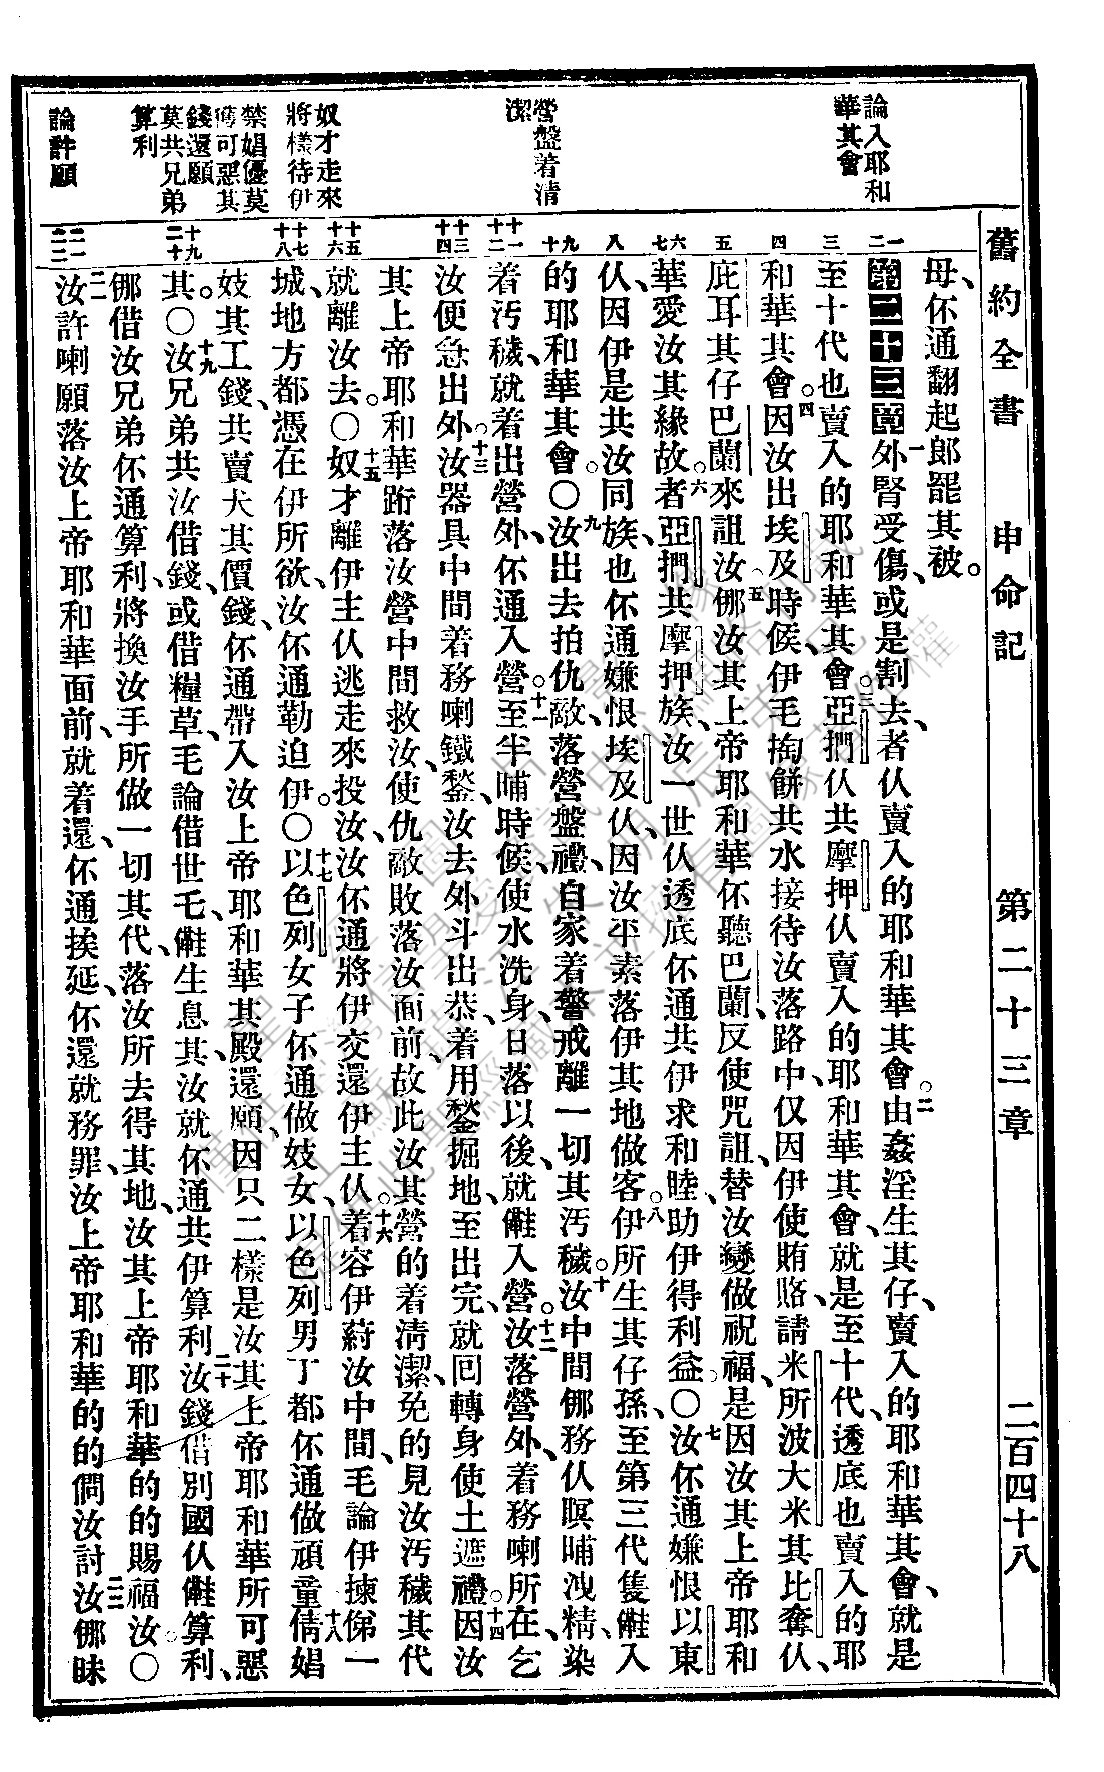 舊約全書 申命記 第二十三章 二百四十八
論入耶和
華其會
營盤着清
潔
奴才走來
將樣待伊
禁娼優莫
應可惡其
錢還願
莫共兄弟
算利
論許願
母、伓通翻起郎罷其被。
第二十三章 一外腎受傷、或是割去、者仈賣入的耶和華其會。二由姦淫生其仔、賣入的耶和華其會、就是
至十代也賣入的耶和華其會。三亞捫仈共摩押仈賣入的耶和華其會、就是至十代、透底也賣入的耶
和華其會。四因汝出埃及時候、伊毛掏餅共水接待汝落路中、仅因伊使賄賂、請米所波大米其比奪仈、
庇耳其仔巴蘭來詛汝。五倻汝其上帝耶和華伓聽巴蘭、反使咒詛、替汝變做祝福、是因汝其上帝耶和
華愛汝其緣故。六者亞捫共摩押族、汝一世仈透底伓通共伊求和睦、助伊得利益。〇七汝伓通嫌恨以東
仈、因伊是共汝同族、也伓通嫌恨埃及仈、因汝平素落伊其地做客。八伊所生其仔孫、至第三代隻㑻入
的耶和華其會。〇九汝出去拍仇敵、落營盤禮、自家着警戒離一切其汚穢。十汝中間倻務仈暝晡洩精、染
着汚穢、就着出營外、伓通入營。十一至半晡時候、使水洗身、日落以後、就㑻入營。十二汝落營外、着務喇所在、乞
汝便急出外。十三汝器具中間着務喇鐵鍫、汝去外斗出恭、着用鍫掘地、至出完、就回轉身使土遮禮。十四因汝
其上帝耶和華跡落汝營中間救汝、使仇敵敗落汝面前、故此汝其營的着淸潔、免的見汝汚穢其代
就離汝去。〇十五奴才離伊主仈逃走來投汝、汝伓通將伊交還伊主仈。十六着容伊蒔汝中間、毛論伊揀俤一
城、地方都憑在伊所欲、汝伓通勒迫伊。〇十七以色列女子伓通做妓女、以色列男丁都伓通做頑童。十八倩娼
妓其工錢、共賣犬其價錢、伓通帶入汝上帝耶和華其殿還願、因只二樣是汝其上帝耶和華所可惡
其。〇十九汝兄弟共汝借錢、或借糧草、毛論借世毛、㑻生息其、汝就伓通共伊算利。二十汝錢借別國仈㑻算利、
倻借汝兄弟伓通算利、將換汝手所做一切其代、落汝所去得其地、汝其上帝耶和華的的賜福汝。〇
二一汝許喇願落汝上帝耶和華面前、就着還、伓通挨延、伓還就務罪、汝上帝耶和華的的僩汝討。二二汝倻昧